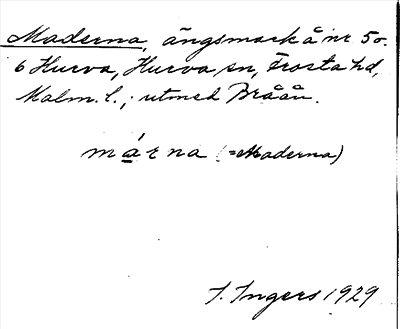 Maderna, ängsmark å nr 5 o.
6 Hurva, Hurva sn, Frosta hd,
Malm. l.; utmed Bråån.
márna (=Maderna)
I. Ingers 1929